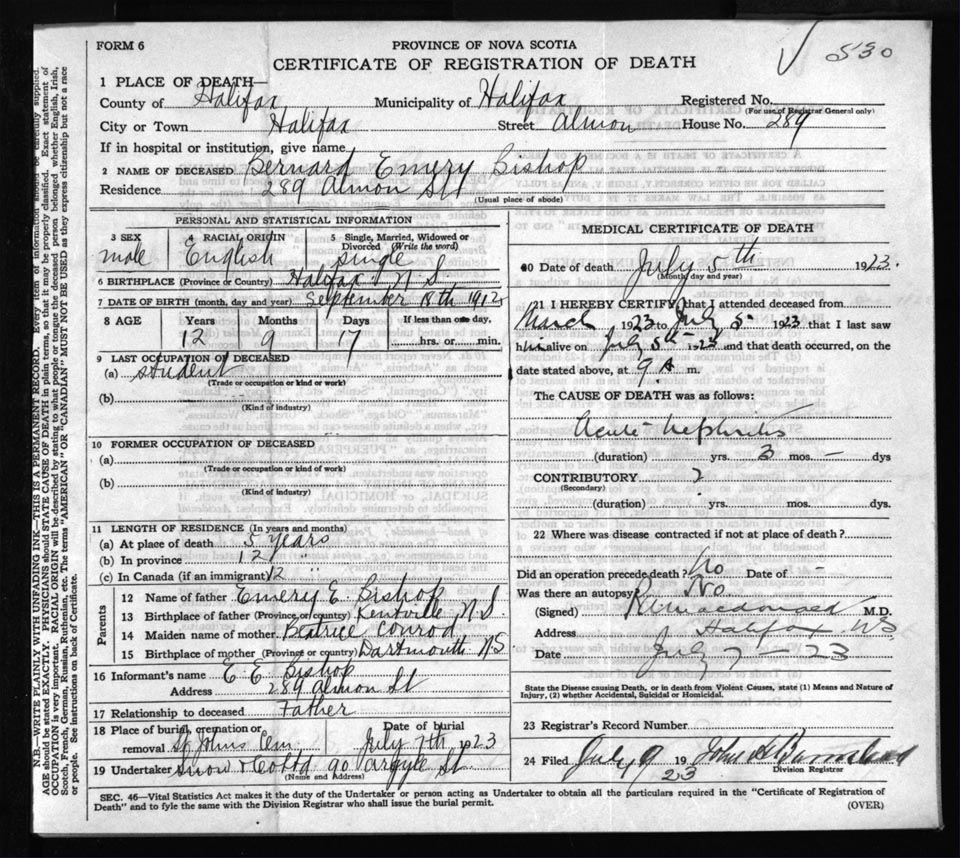 FORM 6
PROVINCE OF NOVA SCOTIA
CERTIFICATE OF REGISTRATION OF DEATH
√ 530
1 PLACE OF DEATH—
County of Halifax Municipality of Halifax Registered No.
(For use of Registrar General only)
City or Town Halifax Street Almon House No. 289
If in hospital or institution, give name
2 NAME OF DECEASED Bernard Emery Bishop
Residence 289 Almon St
(Usual place of abode)
PERSONAL AND STATISTICAL INFORMATION
3 SEX 4 RACIAL ORIGIN 5 Single, Married, Widowed or Divorced (Write the word)
male English single
6 BIRTHPLACE (Province or Country) Halifax N.S
7 DATE OF BIRTH (month, day and year) September 18th 1912
8 AGE Years Months Days If less than one day,
12 9 17 hrs. or min.
9 LAST OCCUPATION OF DECEASED
(a) student
(Trade or occupation or kind or work)
(b)
(Kind of industry)
10 FORMER OCCUPATION OF DECEASED
(a)
(Trade or occupation or kind or work)
(b)
(Kind of industry)
11 LENGTH OF RESIDENCE (In years and months)
(a) At place of death 5 years
(b) In province 12 "
(c) In Canada (if an immigrant) 12 "
Parents
12 Name of father Emery E. Bishop
13 Birthplace of father (Province or country) Kentville N S
14 Maiden name of mother Beatrice Conrod
15 Birthplace of mother (Province or country) Dartmouth NS
16 Informant's name E E Bishop
Address 289 Almon St
17 Relationship to deceased Father
18 Place of burial, cremation or removal St Johns Cem Date of burial July 7th 1923
19 Undertaker Snow 90 Argyle St
(Name and Address)
MEDICAL CERTIFICATE OF DEATH
20 Date of death July 5th 1923.
(Month, day and year)
21 I HEREBY CERTIFY that I attended deceased from
March 1923 to July 5 1923 that I last saw
him alive on July 5th 1923 and that death occurred, on the
date stated above, at 9 A m.
The CAUSE OF DEATH was as follows:
Acute nephritis
(duration) yrs. 3 mos. — dys
CONTRIBUTORY ?
(Secondary)
(duration) yrs. mos. dys.
22 Where was disease contracted if not at place of death?
Did an operation precede death? No Date of -
Was there an autopsy? No.
(Signed) Macdonald M.D.
Address Halifax NS
Date July 7 — 23
State the Disease causing Death, or in death from Violent Causes, state (1) Means and Nature of
Injury, (2) whether Accidental, Suicidal or Homicidal.
23 Registrar's Record Number
24 Filed July 9 1923 John
Division Registrar
SEC. 46—Vital Statistics Act makes it the duty of the Undertaker or person acting as Undertaker to obtain all the particulars required in the "Certificate of Registration of
Death" and to fyle the same with the Division Registrar who shall issue the burial permit.
(OVER)
N.B.—WRITE PLAINLY WITH UNFADING INK—THIS IS A PERMANENT RECORD. Every item of information should be carefully supplied.
AGE should be stated EXACTLY. PHYSICIANS should STATE CAUSE OF DEATH in plain terms, so that it may be properly classified. Exact statement of
OCCUPATION is very important. RACIAL ORIGIN will be described by stating to what people or tongue the deceased person belonged whether English, Irish,
Scotch, French, German, Russian, Ruthenian, etc. The terms "AMERICAN" OR "CANADIAN" MUST NOT BE USED as they express citizenship but not a race
or people. See instructions on back of Certificate.